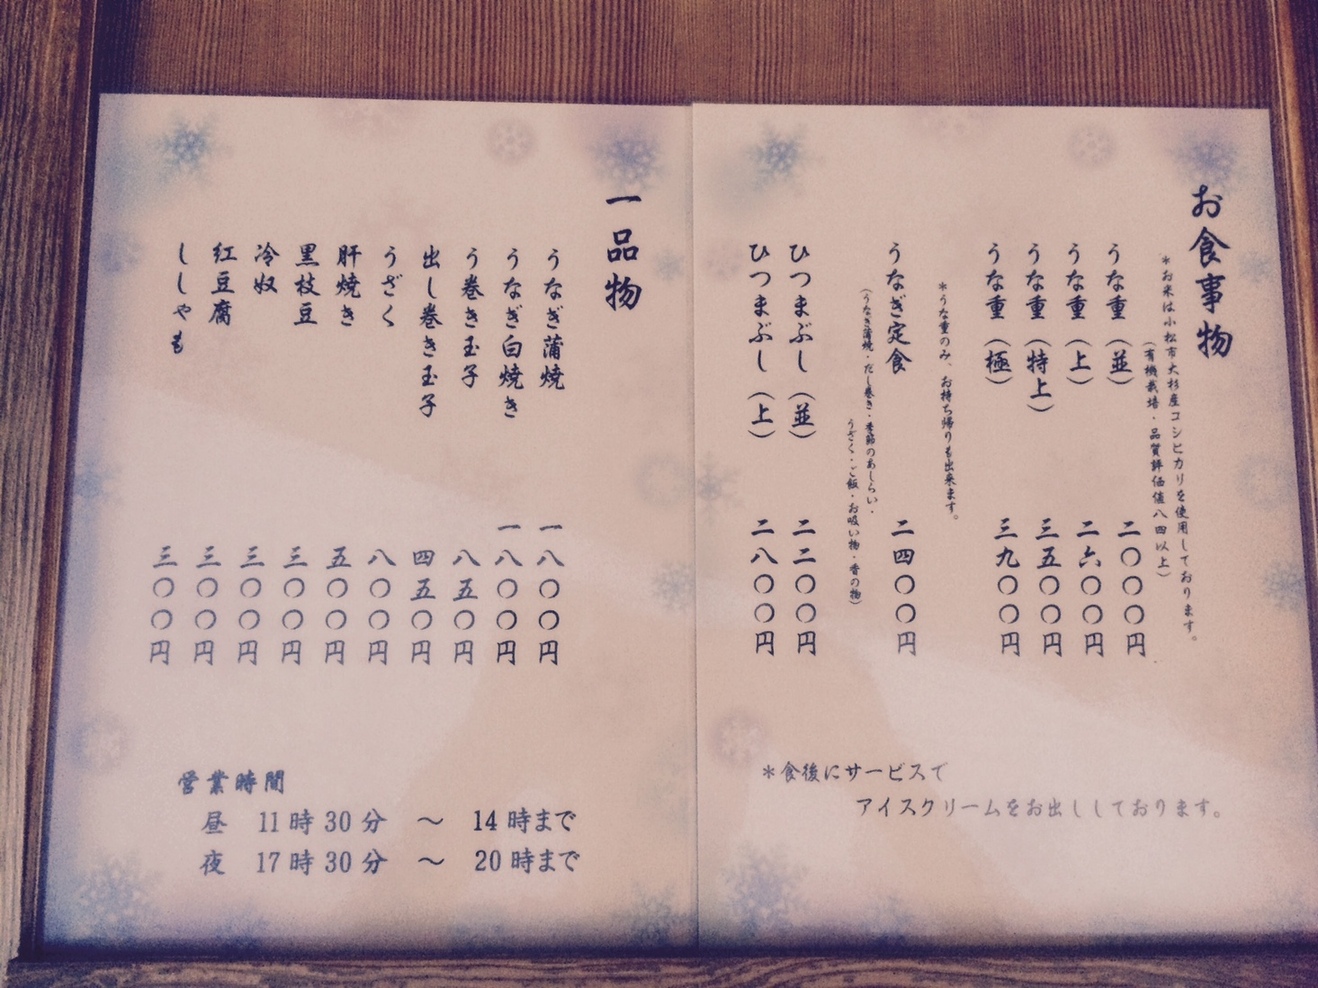 お食事物
＊お米は小松市大杉産コシヒカリを使用しております。
（有機栽培・品質評価値八四以上）
うな重（並） 二〇〇〇円
うな重（上） 二六〇〇円
うな重（特上） 三五〇〇円
うな重（極） 三九〇〇円
＊うな重のみ、お持ち帰りも出来ます。
うなぎ定食 二四〇〇円
（うなぎ蒲焼・だし巻き・季節のあしらい・
うざく・ご飯・お吸い物・香の物）
ひつまぶし（並） 二二〇〇円
ひつまぶし（上） 二八〇〇円
＊食後にサービスで
アイスクリームをお出ししております。
一品物
うなぎ蒲焼 一八〇〇円
うなぎ白焼き 一八〇〇円
う巻き玉子 八五〇円
出し巻き玉子 四五〇円
うざく 八〇〇円
肝焼き 五〇〇円
黒枝豆 三〇〇円
冷奴 三〇〇円
紅豆腐 三〇〇円
ししゃも 三〇〇円
営業時間
昼 11時30分 〜 14時まで
夜 17時30分 〜 20時まで